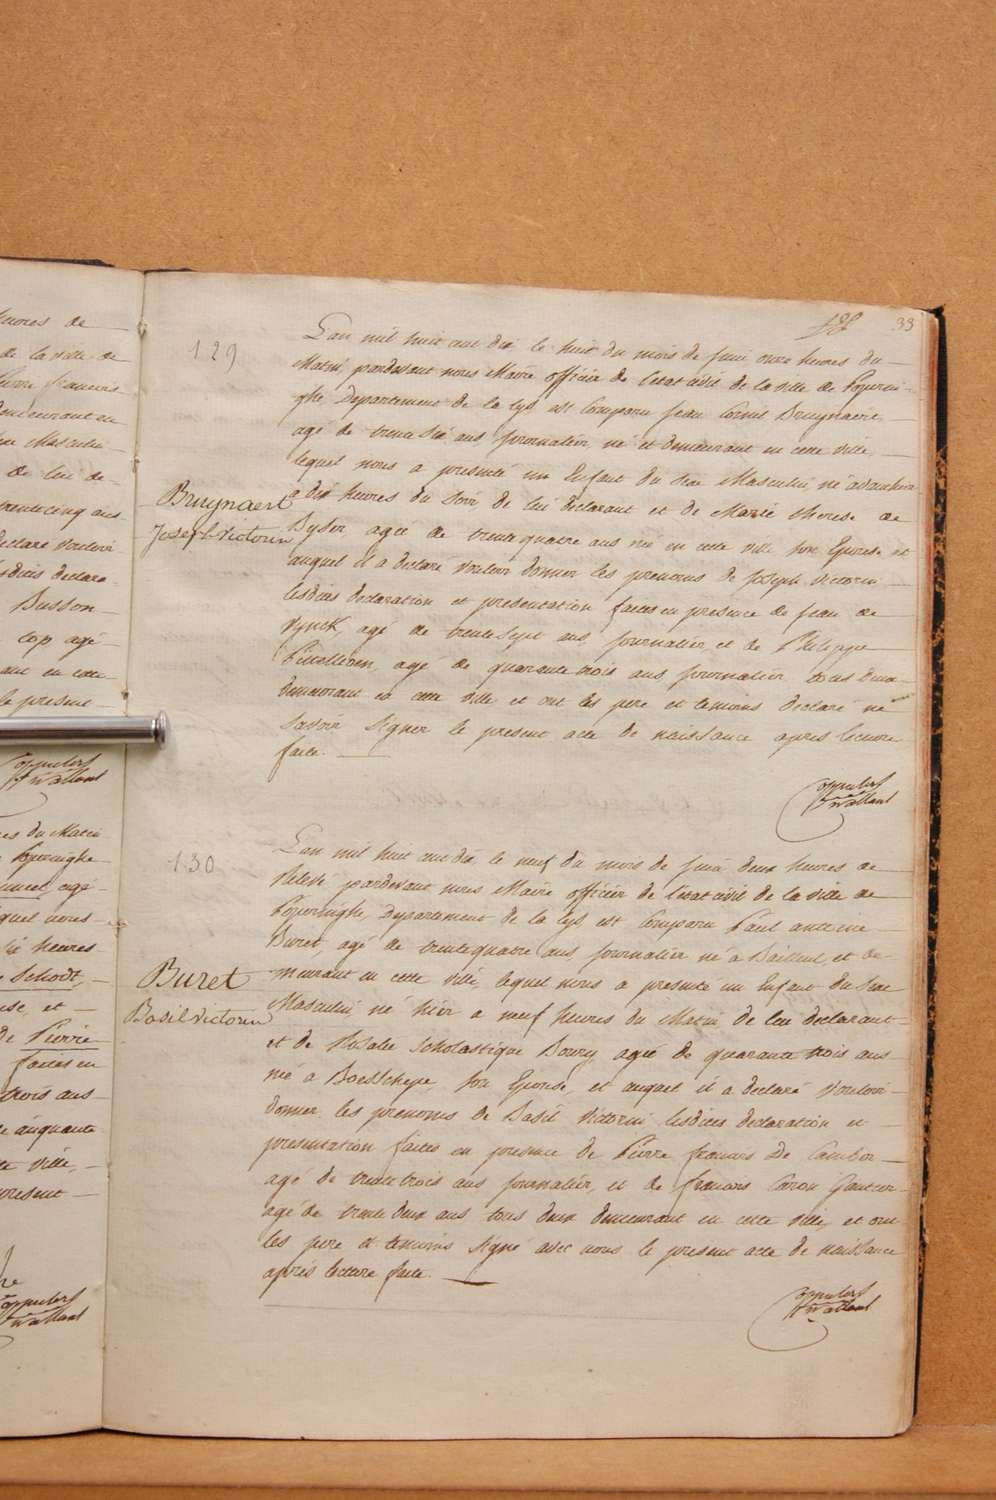 heures de
de la ville de
demeurant en
Masculin
de lui de-
trente cinq ans
declaré vouloir
Busson
cop agé
le present
W: vallant
es du Matin
Poperinghe
agé
quel nous
heures
Schodt,
et
de Pierre
faites en
trois ans
cinquante
ville,
present
W: vallant
33
129
L'an mil huit cent dix le huit du mois de Juin onze heures du
Matin, pardevant nous Maire officier de l'etat civil de la ville de Poperin-
ghe Departement de la Lys est Comparu Jean Corneil Bruynaert
agé de trente six ans Journalier, né et demeurant en cette ville,
lequel nous a presenté un Enfant du sexe Masculin né avant hier
Bruynaert
Joseph Victorin
a dix heures du soir de lui declarant et de Marie therese de
Byser, agée de trente quatre ans née en cette ville son Epouse et
auquel il a declaré vouloir donner les prenoms de Joseph Victorin
lesdites declaration et presentation faites en presence de Jean de
Vynck, agé de trente sept ans, Journalier, et de Philippe
agé de quarante trois ans Journalier tous deux
demeurant en cette ville et ont les pere et temoins declaré ne
savoir signer le present acte de naissance apres lecture
faite.
W: vallant
130
L'an mil huit cent dix le neuf du mois de Juin, deux heures de
relevé pardevant nous Maire officier de l'etat civil de la ville de
Poperinghe, Departement de la Lys, est Comparu Paul antoine
Buret, agé de trente quatre ans, Journalier né à Bailleul et de-
Buret
Basil Victorin
meurant en cette ville, lequel nous a presenté un Enfant du sexe
Masculin, né hier a neuf heures du Matin, de lui declarant
et de Rosalie Scholastique Boury agée de quarante trois ans
née a Boesschepe, son Epouse, et auquel il a declaré vouloir
donner les prenoms de Basil Victorin lesdites declaration et
presentation faites en presence de Pierre francois De Cambor
agé de trente trois ans Journalier, et de francois Caron
agé de trente deux ans tous deux demeurant en cette ville, et ont
les pere et temoins signé avec nous le present acte de naissance
après lecture faite.
W: vallant